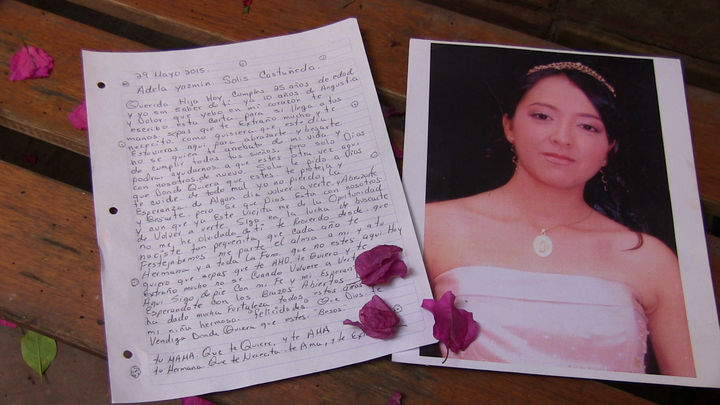 29 Mayo 2015.
Adela Yazmin Solis Castañeda.
Querida Hija Hoy Cumples 25 años de edad
y yo sin saber de ti ya 10 años de Angustia
y Dolor que llebo en mi corazon te
escribo esta Carta para si llega a tus
manos sepas que te Extraño mucho y te
necesito como quisiera que este dia
Estuvieras aqui para abrazarte y besarte
no se quien te arrebato de mi vida y
de cumplir todos tus sueños pero solo Dios
podra ayudarnos a que estes otra vez aqui
con nosotros de nuevo. Solo le pido a Dios
que Donde Quiera que estes te proteja y
te cuide de todo mal yo no pierdo la
Esperanza de Algun dia volver a verte, Abrazarte
y Besarte pero Se que Dios Esta con nosotros
y aun que ya Este Viejita me de la Oportunidad
de Volver a verte Sigo en la lucha de buscarte
no me he olvidado de ti te Recuerdo desde que
naciste tan pequeñita que cada año te
Festejabamos me parte el alma a mi y a tu
Hermana y a toda la Fam. que no estes aqui Hoy
quiero que sepas que te AMO, te Quiero y te
Extraño mucho no se Cuando Volvere a Verte
Aqui Sigo de pie Con mi Fe y mi Esperanza
Esperandote con los Brazos Abiertos
ha dado mucha Fortaleza todos estos años
mi niña hermosa. Felicidades. Que Dios te
Vendiga Donde Quiera que estes. Besos.
tu MAMA. Que te Quiere, y te AMA
tu Hermana Que te Necesita te Ama, y te